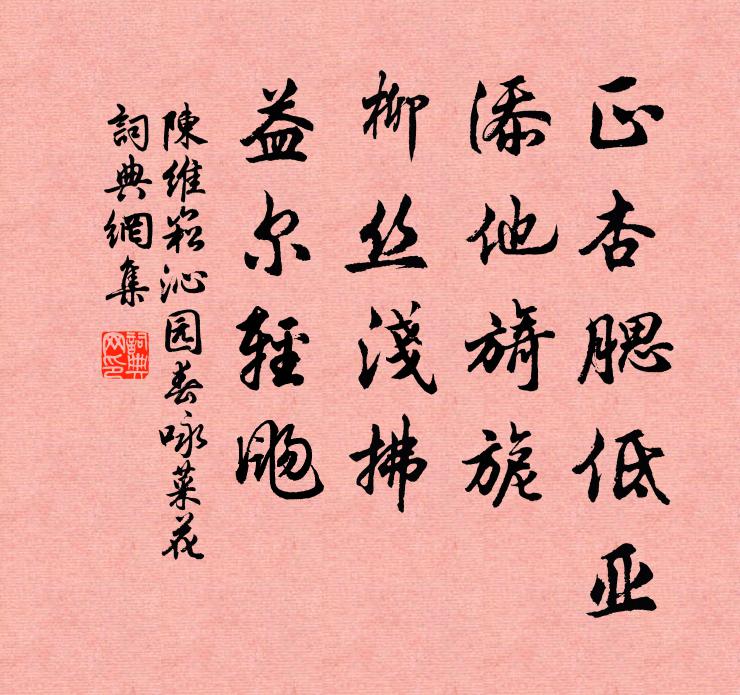 正杏腮低亚
添他旖旎
柳丝浅拂
益尔轻飏
陳維崧沁园春咏菜花
詞典網集
詞典网印